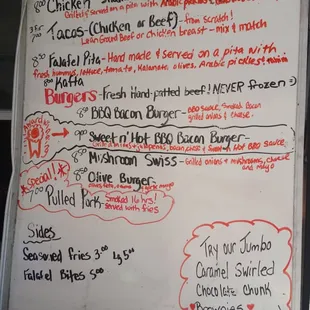 8.00 Chicken
Grilled & served on a pita with Arabic pickles
3 for 7.00 Tacos-(Chicken or Beef)- from Scratch!
Lean Ground Beef or Chicken breast - mix & match
8.50 Falafel Pita- Hand made & served on a pita with
fresh hummus, lettuce, tomato, Kalamata olives, Arabic pickles &
8.50 Kafta
Burgers- Fresh Hand-patted beef! NEVER frozen :)
8.50 BBQ Bacon Burger- BBQ sauce, Smoked Bacon
grilled onions & cheese
Award
9.00 Sweet n' Hot BBQ Bacon Burger-
Grilled onions & jalapenos, bacon, cheese & Sweet n' Hot BBQ sauce
8.50 Mushroom Swiss- Grilled onions & mushrooms, cheese
and mayo
Special!
8.50 Olive Burger-
7.00 Pulled Pork- Smoked 16 hrs!
served with fries
Sides
Seasoned fries 3.00 Lg 5.00
Falafel Bites 5.00
Try our Jumbo
Caramel Swirled
Chocolate Chunk
Brownies